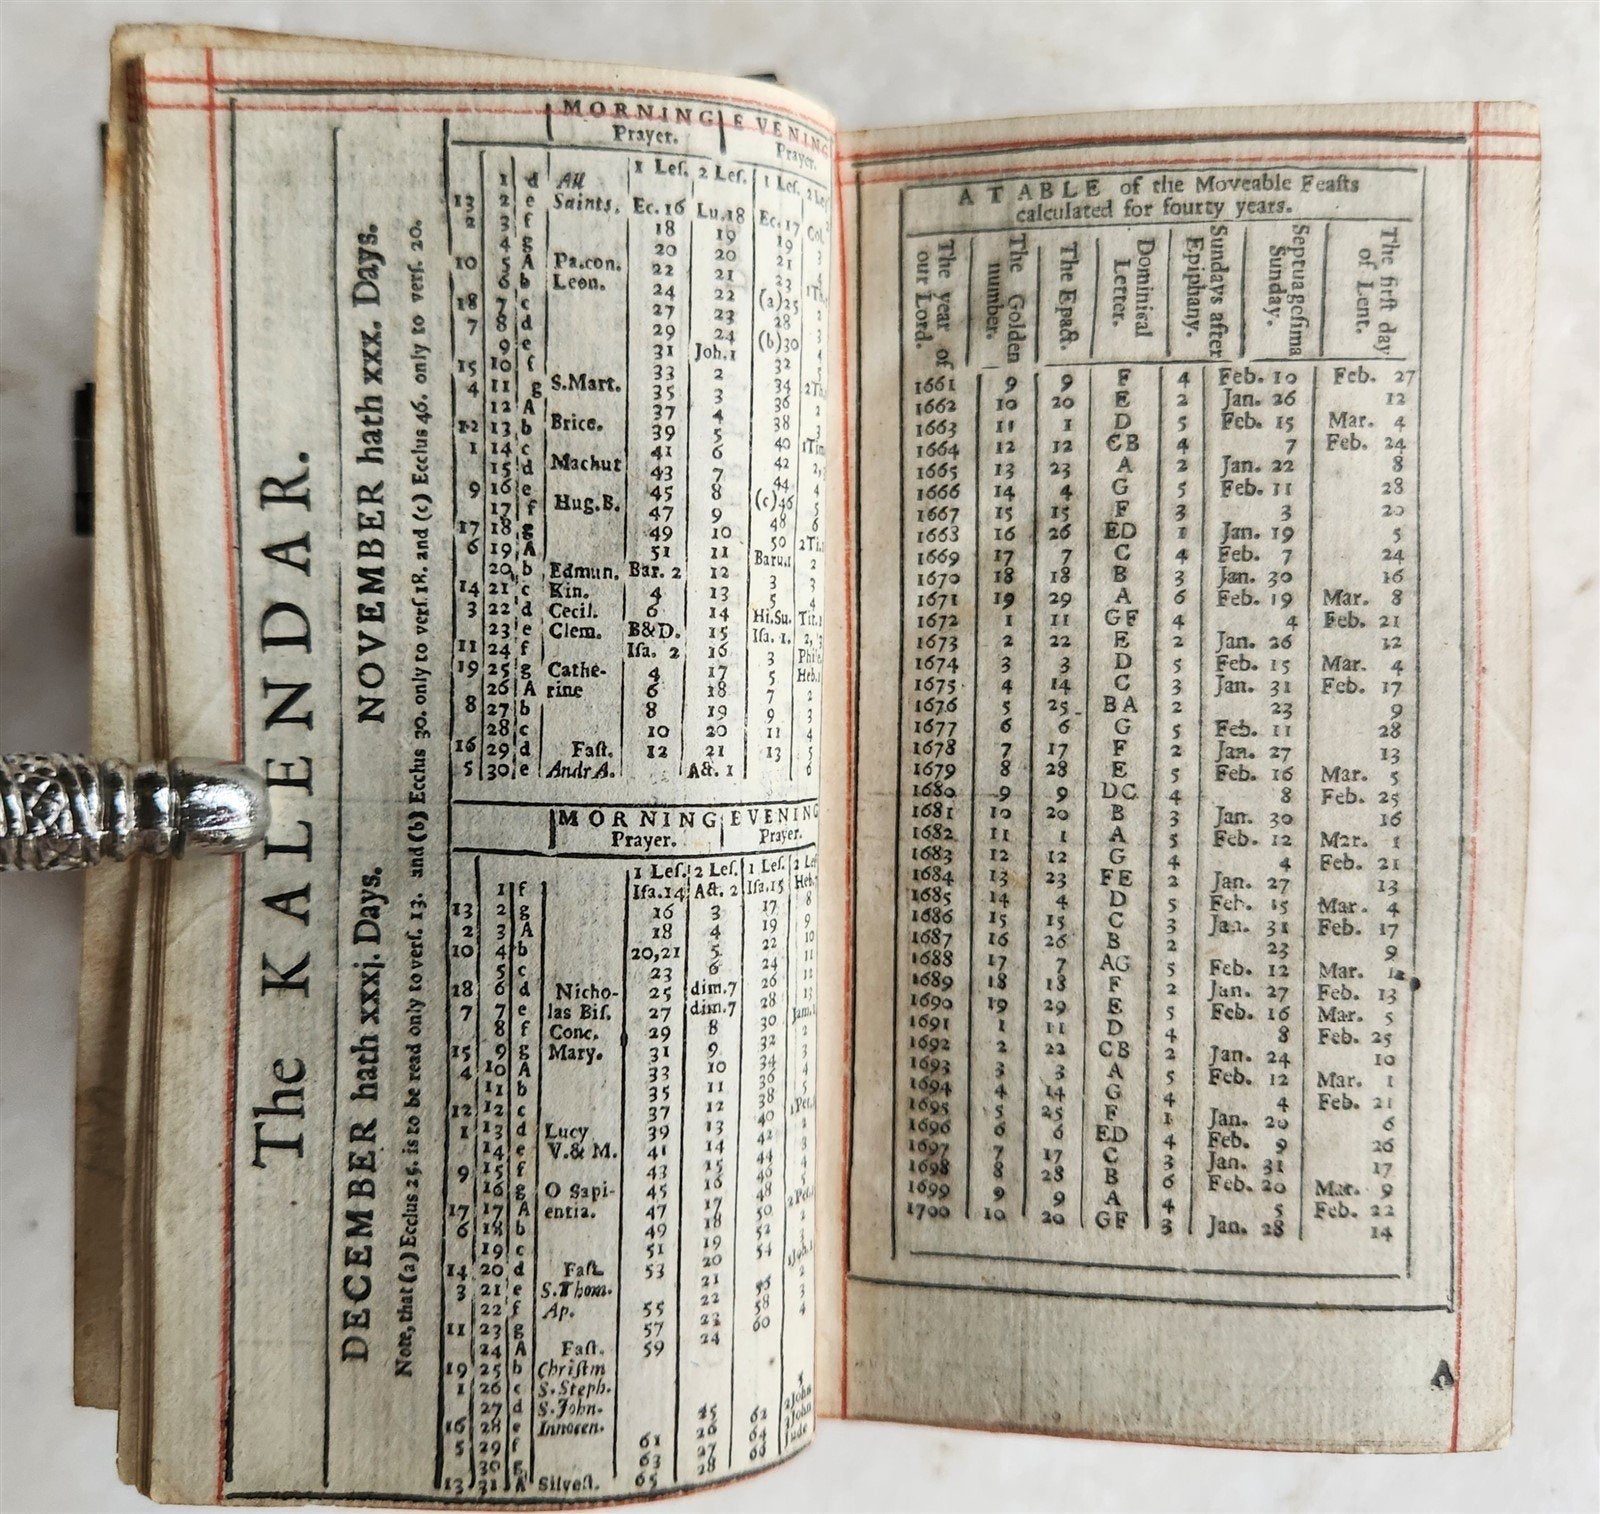 The KALENDAR.
NOVEMBER hath xxx. Days.
DECEMBER hath xxxj. Days.
Note, that (a) Ecclus 25. is to be read only to verſ. 13. and (b) Ecclus 30. only to verſ. 18. and (c) Ecclus 46. only to verſ. 20.
MORNING EVENING
Prayer. Prayer.
1 Leſ. 2 Leſ. 1 Leſ. 2 Leſ
1 d All
13 2 e Saints. Ec. 16 Lu.18 Ec.17 Col. 2
2 3 f 18 19 19 3
4 g 20 20 21 4
10 5 A Pa.con. 22 21 23 1Th.
6 b Leon. 24 22 (a)25 2
18 7 c 27 23 28 3
7 8 d 29 24 (b)30 4
9 e 31 Joh.1 32 5
15 10 f 33 2 34 2Th.
4 11 g S.Mart. 35 3 36 2
12 A 37 4 38 3
12 13 b Brice. 39 5 40 1Tim
1 14 c 41 6 42 2,
15 d Machut 43 7 44 4
9 16 e 45 8 (c)46 5
17 f Hug.B. 47 9 48 6
17 18 g 49 10 50 2Ti.
6 19 A 51 11 Baru.1 2
20 b Edmun. Bar. 2 12 3 3
14 21 c Kin. 4 13 5 4
3 22 d Cecil. 6 14 Hi.Su. Tit.1
23 e Clem. B&D. 15 Iſa. 1. 2, 3
11 24 f Iſa. 2 16 3 Phile
19 25 g Cathe- 4 17 5 Heb.1
26 A rine 6 18 7 2
8 27 b 8 19 9 3
28 c 10 20 11 4
16 29 d Faſt. 12 21 13 5
5 30 e AndrA. Act. 1 6
MORNING EVENING
Prayer. Prayer.
1 Leſ. 2 Leſ. 1 Leſ. 2 Leſ
1 f Iſa.14 Act. 2 Iſa.15 Heb.7
13 2 g 16 3 17 8
2 3 A 18 4 19 9
10 4 b 20,21 5 22 10
5 c 23 6 24 11
18 6 d Nicho- 25 dim.7 26 12
7 7 e las Biſ. 27 dim.7 28 13
8 f Conc. 29 8 30 Jam.1
15 9 g Mary. 31 9 32 2
4 10 A 33 10 34 3
11 b 35 11 36 4
12 12 c 37 12 38 5
1 13 d Lucy 39 13 40 1Pet.
14 e V.& M. 41 14 42 2
9 15 f 43 15 44 3
16 g O Sapi- 45 16 46 4
17 17 A entia. 47 17 48 5
6 18 b 49 18 50 2Pet.
19 c 51 19 52 2
14 20 d Faſt. 53 20 54 3
3 21 e S.Thom. 21 1Joh.1
22 f Ap. 55 22 56 2
11 23 g 57 23 58 3
24 A Faſt. 59 24 60 4
19 25 b Chriſtm
1 26 c S.Steph.
27 d S.John. 5
16 28 e Innocen. 25 62 2John
5 29 f 61 26 64 3John
30 g 63 27 66 Jude
13 31 A Silveſt. 65 28
A TABLE of the Moveable Feaſts
calculated for fourty years.
The year of our Lord. The Golden number. The Epact. Dominical Letter. Sundays after Epiphany. Septuageſima Sunday. The firſt day of Lent.
1661 9 9 F 4 Feb. 10 Feb. 27
1662 10 20 E 2 Jan. 26 12
1663 11 1 D 5 Feb. 15 Mar. 4
1664 12 12 CB 4 7 Feb. 24
1665 13 23 A 2 Jan. 22 8
1666 14 4 G 5 Feb. 11 28
1667 15 15 F 3 3 20
1663 16 26 ED 1 Jan. 19 5
1669 17 7 C 4 Feb. 7 24
1670 18 18 B 3 Jan. 30 16
1671 19 29 A 6 Feb. 19 Mar. 8
1672 1 11 GF 4 4 Feb. 21
1673 2 22 E 2 Jan. 26 12
1674 3 3 D 5 Feb. 15 Mar. 4
1675 4 14 C 3 Jan. 31 Feb. 17
1676 5 25 BA 2 23 9
1677 6 6 G 5 Feb. 11 28
1678 7 17 F 2 Jan. 27 13
1679 8 28 E 5 Feb. 16 Mar. 5
1680 9 9 DC 4 8 Feb. 25
1681 10 20 B 3 Jan. 30 16
1682 11 1 A 5 Feb. 12 Mar. 1
1683 12 12 G 4 4 Feb. 21
1684 13 23 FE 2 Jan. 27 13
1685 14 4 D 5 Feb. 15 Mar. 4
1686 15 15 C 3 Jan. 31 Feb. 17
1687 16 26 B 2 23 9
1688 17 7 AG 5 Feb. 12 Mar.
1689 18 18 F 2 Jan. 27 Feb. 13
1690 19 29 E 5 Feb. 16 Mar. 5
1691 1 11 D 4 8 Feb. 25
1692 2 22 CB 2 Jan. 24 10
1693 3 3 A 5 Feb. 12 Mar. 1
1694 4 14 G 4 4 Feb. 21
1695 5 25 F 1 Jan. 20 6
1696 6 6 ED 4 Feb. 9 26
1697 7 17 C 3 Jan. 31 17
1698 8 28 B 6 Feb. 20 Mar. 9
1699 9 9 A 4 5 Feb. 22
1700 10 20 GF 3 Jan. 28 14
A